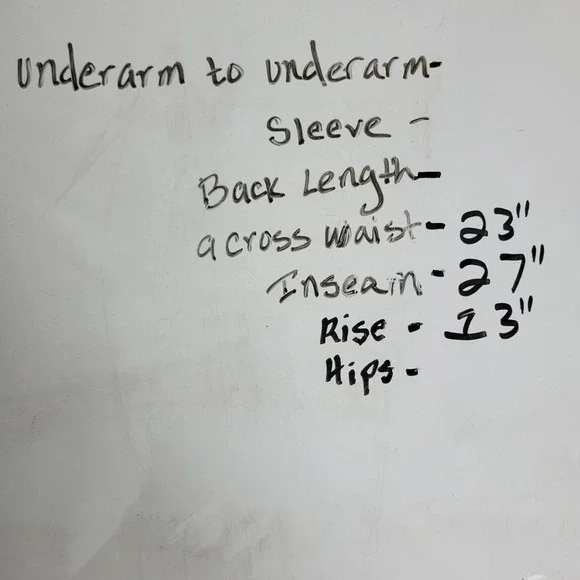 underarm to underarm-
Sleeve -
Back Length-
across waist- 23"
Inseam - 27"
Rise - 13"
Hips -